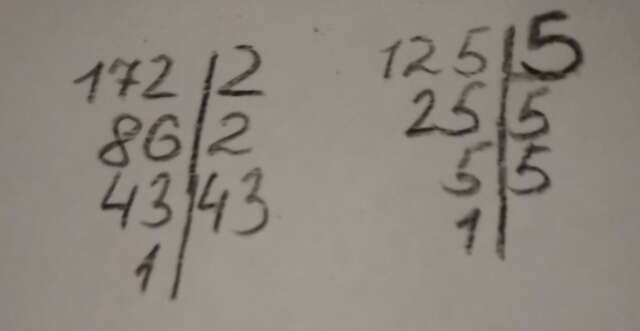 172 | 2
86 | 2
43 | 43
1 |
125 | 5
25 | 5
5 | 5
1 |